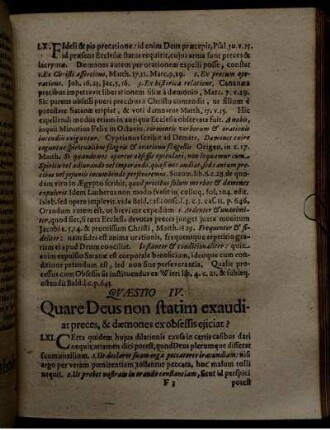 LX. Fideli & pio precatione: id enim Deus præcepit, Psal. 50. v. 15.
id præsens Ecclesiæ status requirit, cujus arma sunt preces &
lacrymæ. Dæmones autem per orationem expelli posse, constat
1. Ex Christi assertione, Matth. 17. 21. Marc. 9. 29. 2. Ex precum
Joh. 16. 23. Jac. 5. 16. 3. Ex historica relatione, Cananæa
precibus impetravit liberationem filiæ à dæmonio, Marc. 7. v. 29.
Sic patrem obsessi pueri precibus à Christo contendit, ut filium è
potestate Satanæ eriperet, & voti compos factus est, Matth. 17. v. 15.
expellendi modus etiam in antiqua Ecclesia observatus fuit.
inquit Minutius Felix in Octavio, tormentis verborum & orationis
incendiis vriguntur. Cyprianus scribit ad Demetr. Dæmones torqueri
spiritualibus flagris & orationum flagellis Origen. in c. 17.
Matth. Si quandoque oportet obsessis
Spiritui vel adjurandi vel imperandi, quasi nos audiat, sed tantum precibus
vel jejuniis incumbendo perseveremus. Sozom. lib. 6. c. 28. de quodam
viro in Ægypto scribit, quod precibus solum morbos & dæmones
expulerit Idem Lutherus non modo docuit in colloq. fol. 104. edit.
Isleb. sed opere implevit, vide Bald.
Orandum autem est, ut breviter expediam 1. ardenter &
quod fiet, si tota Ecclesia devotas preces jungat juxta monitum
Jacobi c. 5. 14. & promissum Christi, Matth. 18. 19. Frequenter &
deliter: nam fides est anima orationis, frequensque repetitio gratiam
ei apud Deum conciliat. Instanter & conditionaliter:
enim expulsio Satanæ est corporale beneficium, ideoque cum
conditione petendum est, sed non sine perseverantia. Qualis processus
cum Obsessis sit instituendus ex Wieri lib. 4. c. 21. & subseq.
ostendit Bald. l. c. p. 643.
QUÆSTIO IV.
Quare Deus non statim exaudi-
at preces, & dæmones ex obsessis ejiciat?
LXI. Certa quidem hujus dilationis exusis in certis casibus dari
nequit: attamen dici potest, quod Deus plerumque differat
auxilium 1. Ut declaret suam erga peccatores iracundiam: nisi
ergo per veram pœnitentiam, tollantur peccata, hoc malum tolli
nequit. 2. Ut probet nostram in orando constantiam, sicut id perspici
F 3 potest